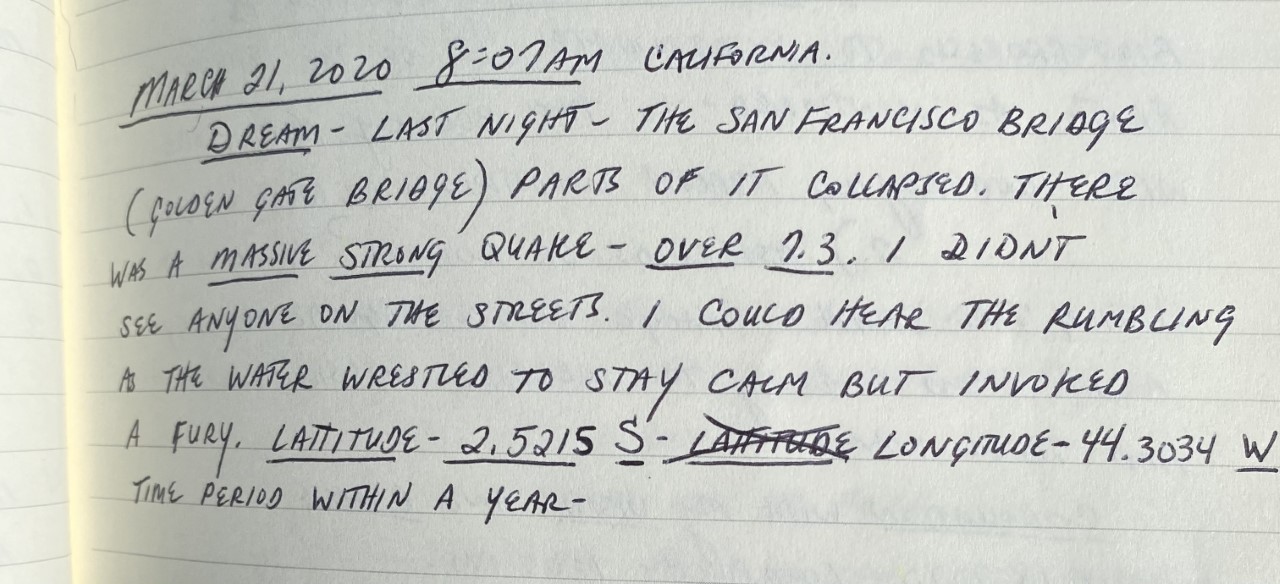 MARCH 21, 2020 8:07AM CALIFORNIA.
DREAM - LAST NIGHT - THE SAN FRANCISCO BRIDGE
(GOLDEN GATE BRIDGE) PARTS OF IT COLLAPSED. THERE
WAS A MASSIVE STRONG QUAKE - OVER 7.3. I DIDNT
SEE ANYONE ON THE STREETS. I COULD HEAR THE RUMBLING
AS THE WATER WRESTLED TO STAY CALM BUT INVOKED
A FURY. LATTITUDE - 2.5215 S - LATTITUDE LONGITUDE - 44.3034 W
TIME PERIOD WITHIN A YEAR -